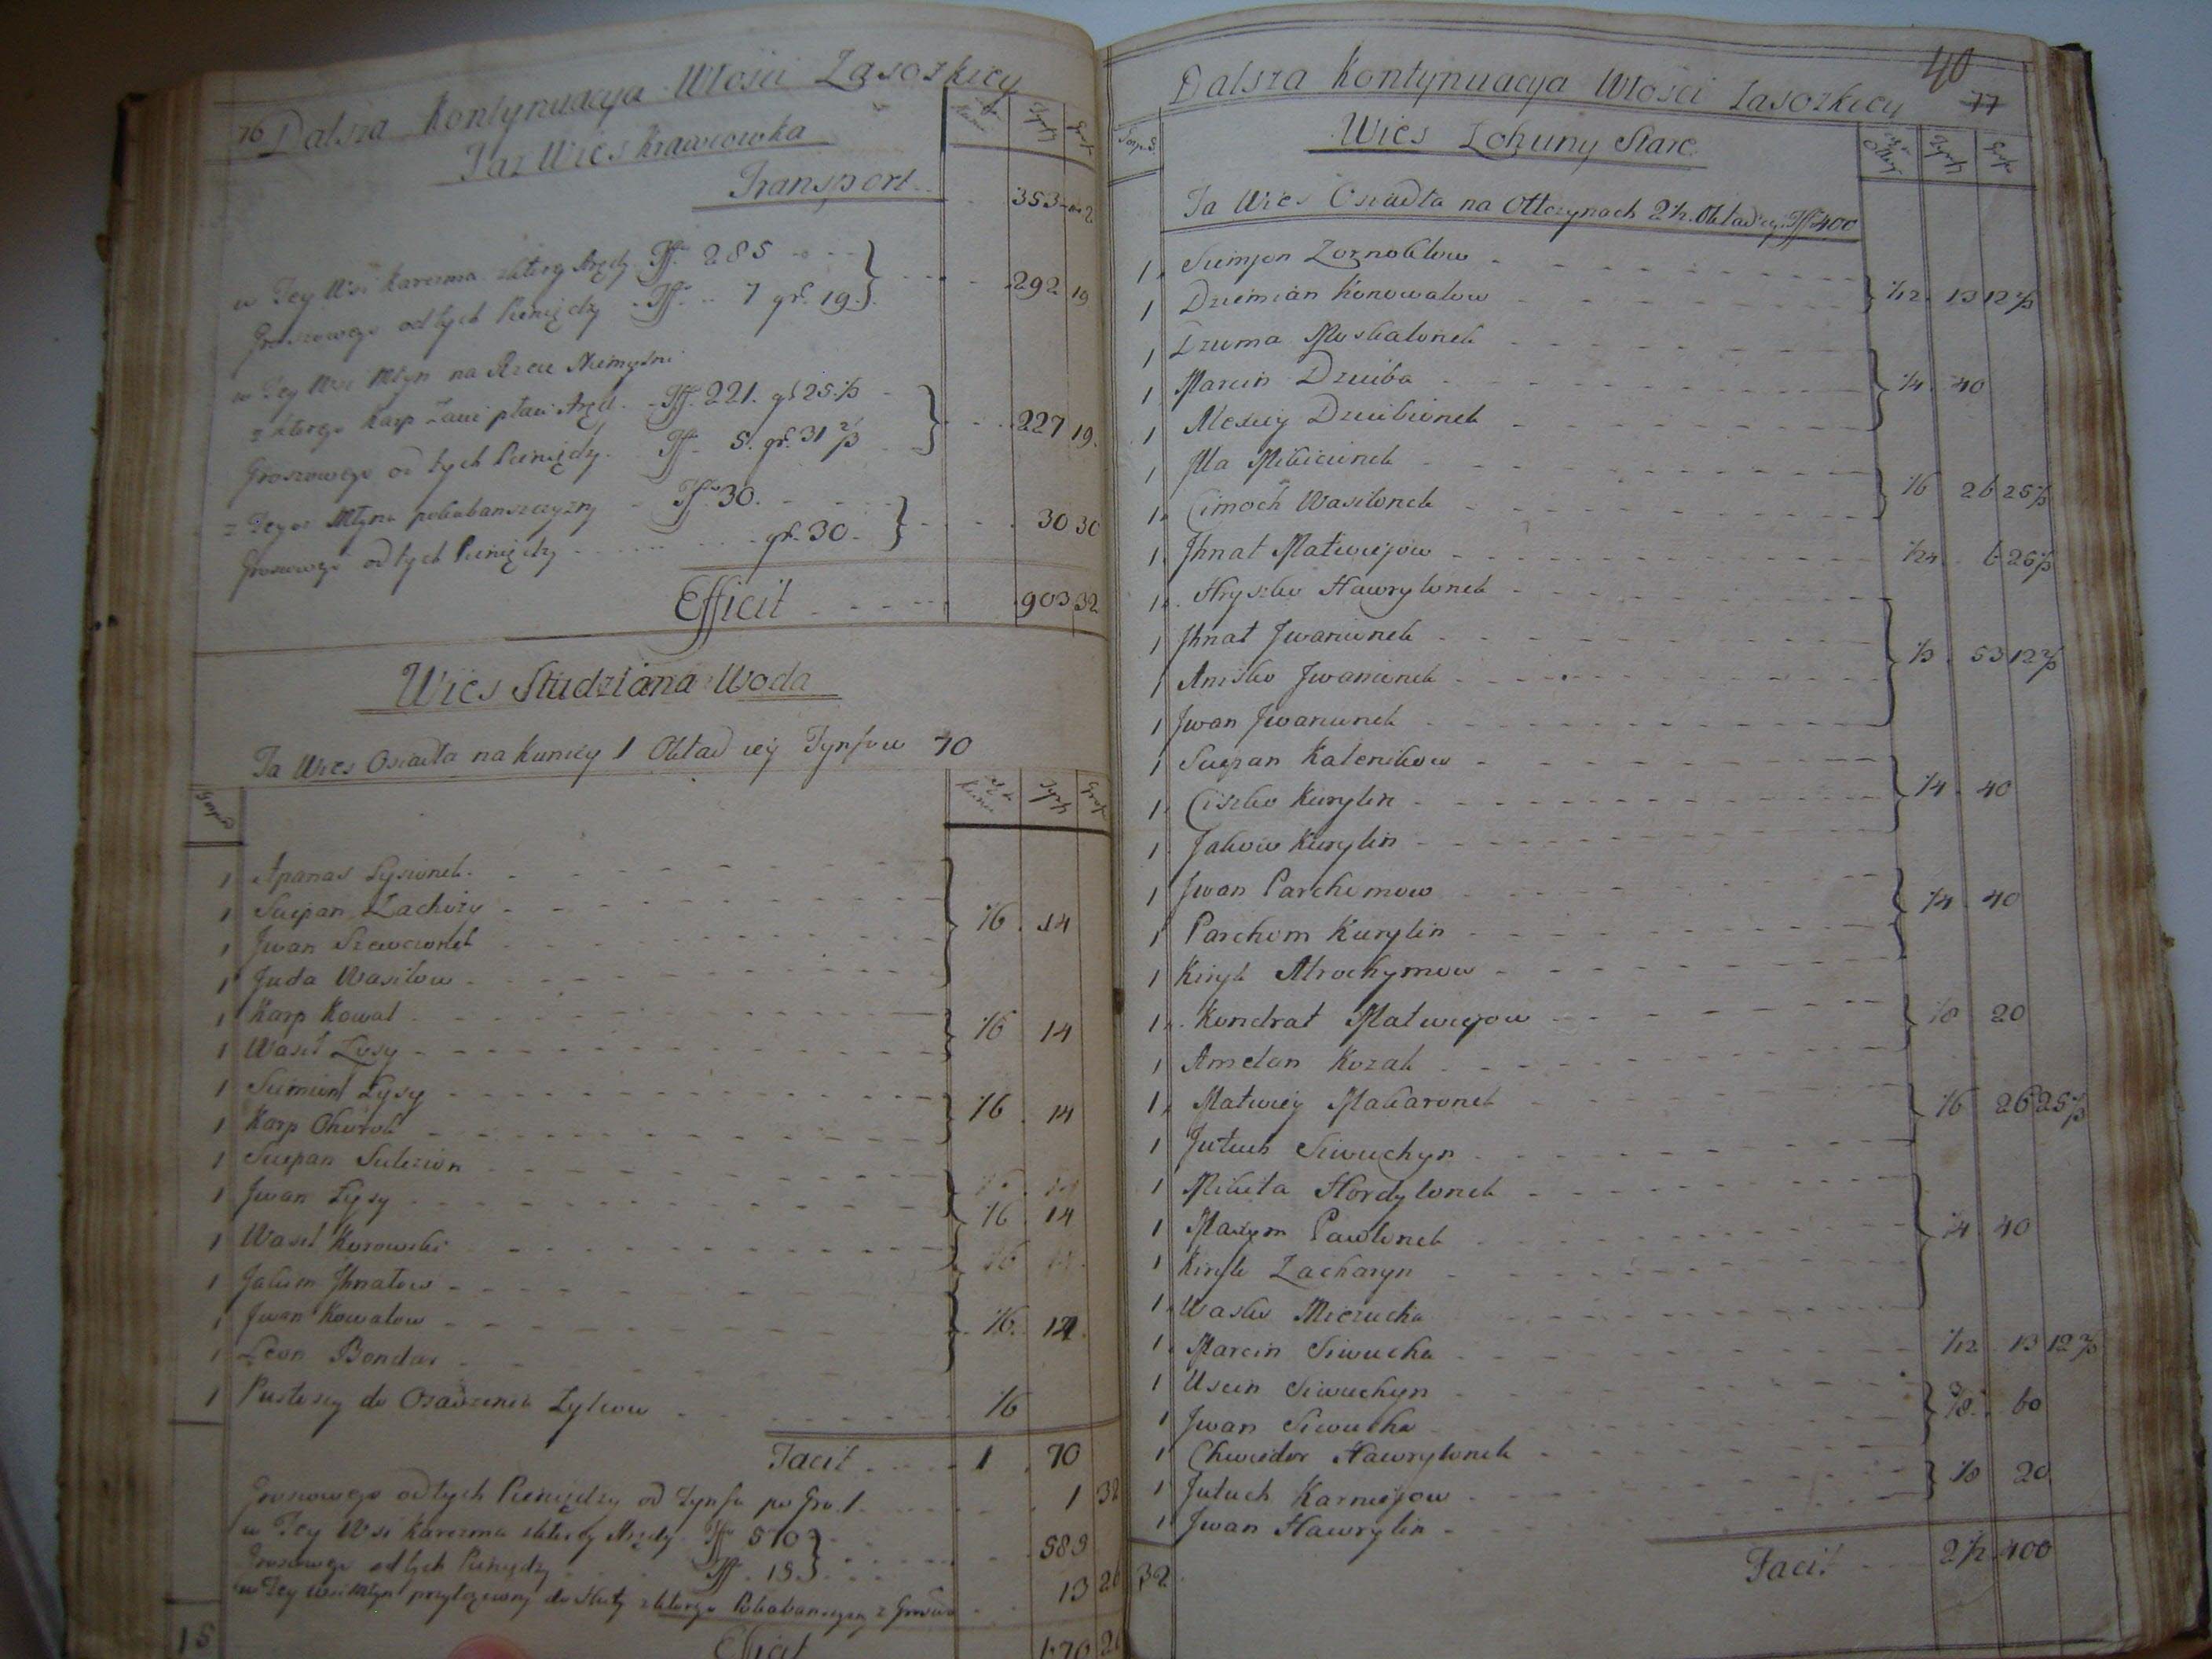 76 Dalsza Kontynuacya Włości Zasozkiey
Taż Wieś Krawcowka
Transport 353 2
w Tey Wsi Karczma z ktorey Arędy Tff. 285
Groszowego od tych Pieniędzy Tff. 7 gr. 19. 292 19
w Tey Wsi Młyn na Rzece
z ktorego Karp płaci Aręd. Tff. 221. gr 25 1/3
Groszowego od tych Pieniędzy. Tff. 5. gr. 31 2/3 227 19.
z Tegoż Młyna pokabanszczyzny Tff. 30.
Groszowego od tych Pieniędzy gr. 30 30 30
Efficit 903 32
Wieś Studziana Woda
Ta Wieś Osiadła na Kunicy 1 Okład iey Tynfow 70
1 Apanas Łysionek
1 Sciepan Zachoży
1 Jwan Szewcionek
1 Juda Wasilow
1/6 14
1 Karp Kowal
1 Wasil Łysy
1/6 14
1 Siemion Łysy
1 Karp Chorok
1/6 14
1 Sciepan
1 Jwan Łysy
1/6 14
1 Wasil Korowski
1 Jakim Jhnatow
1 Jwan Kowalow
1 Leon Bondar
1/6
1 Pustoszy do Osadzenia Zylcow 1/6
Facit 1 70
Groszowego od tych Pieniędzy od Tynfa po Gro. 1. 1 32
w Tey Wsi Karczma z ktorey Arędy Tff 570
Groszowego od tych Pieniędzy Tff. 15 585
w Tey Wsi Młyn przyłączony do Huty z ktorego Pokabanszyzny z Groszo 13 26
15 Efficit 670 2
40
77
Dalsza Kontynuacya Włości Zasozkiey
Wieś Lohuny Stare
Ta Wieś Osiadła na Ottczynach 2 1/2. Okład iey. Tff 400
1 Siemjon Zoznoblow
1 Dziemian Konowalow
1/12 13 12 2/3
1 Dzioma Moskalonek
1 Marcin Dziuba
1 Alexiey Dziubionek
1/4 40
1 Jlla Mikicionek
1 Cimoch Wasilonek
1/6 26 25 1/3
1 Jhnat Matwiejow 1/24 6 26 1/3
1 Hryszko Hawrylonek
1 Jhnat Jwanionek
1 Anisko Jwanionek
1 Jwan Jwanionek
1/3 53 12 2/3
1 Sciepan Kalenikow
1 Ciszko Kurylin
1 Jakow Kurylin
1/4 40
1 Jwan Parchimow
1 Parchom Kurylin
1/4 40
1 Kiryk Atrochymow
1 Kondrat Matwiejow
1/8 20
1 Amelan Kozak
1 Matwiey Makaronek
1 Jutuch Siwuchyn
1/6 26 25 1/3
1 Mikita Hordylonek
1 Maxym Pawlonek
1 Kiryk Zacharyn
1/4 40
1 Wasko Miezucha
1 Marcin Siwucha 1/12 13 12 2/3
1 Uscin Siwuchyn
1 Jwan Siwucha
3/8 60
1 Chwiedor Hawrylonek
1 Jutuch Karniejow
1 Jwan Hawrylin
1/8 20
32 Facit 2 1/2 400